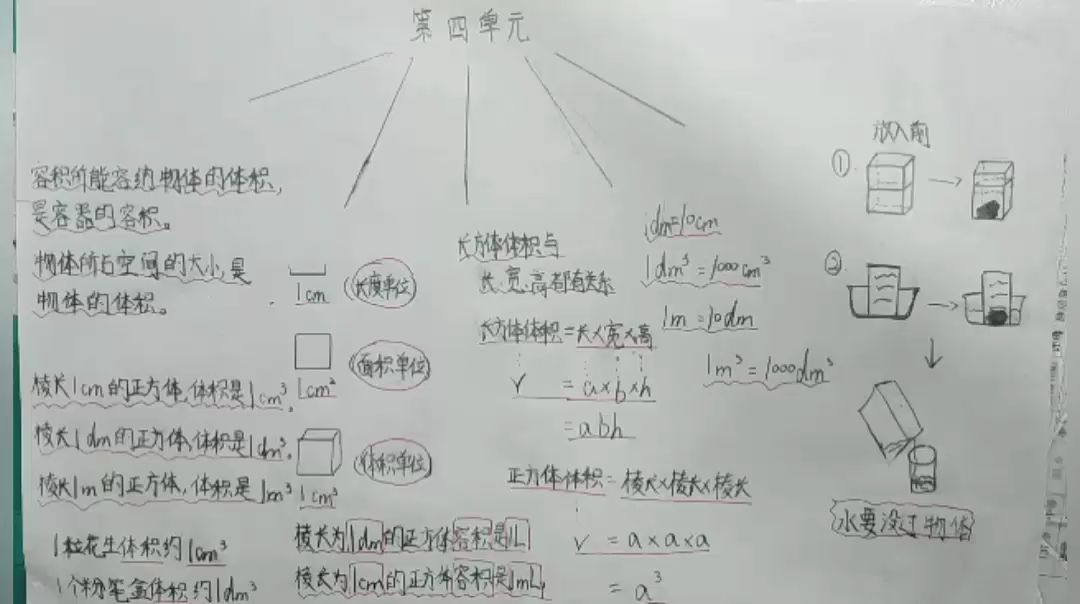 第四单元
容积所能容纳物体的体积,
是容器的容积。
物体所占空间的大小,是
物体的体积。
棱长1cm的正方体,体积是1cm³。
棱长1dm的正方体,体积是1dm³。
棱长1m的正方体,体积是1m³
1粒花生体积约1cm³
1个粉笔盒体积约1dm³
1cm
长度单位
面积单位
1cm²
体积单位
1cm³
棱长为1dm的正方体容积是1L
棱长为1cm的正方体容积是1mL
长方体体积与
长、宽、高都有关系
长方体体积=长×宽×高
V=a×b×h
=abh
正方体体积=棱长×棱长×棱长
V=a×a×a
=a³
1dm=10cm
1dm³=1000cm³
1m=10dm
1m³=1000dm³
放入前
①
②
水要没过物体